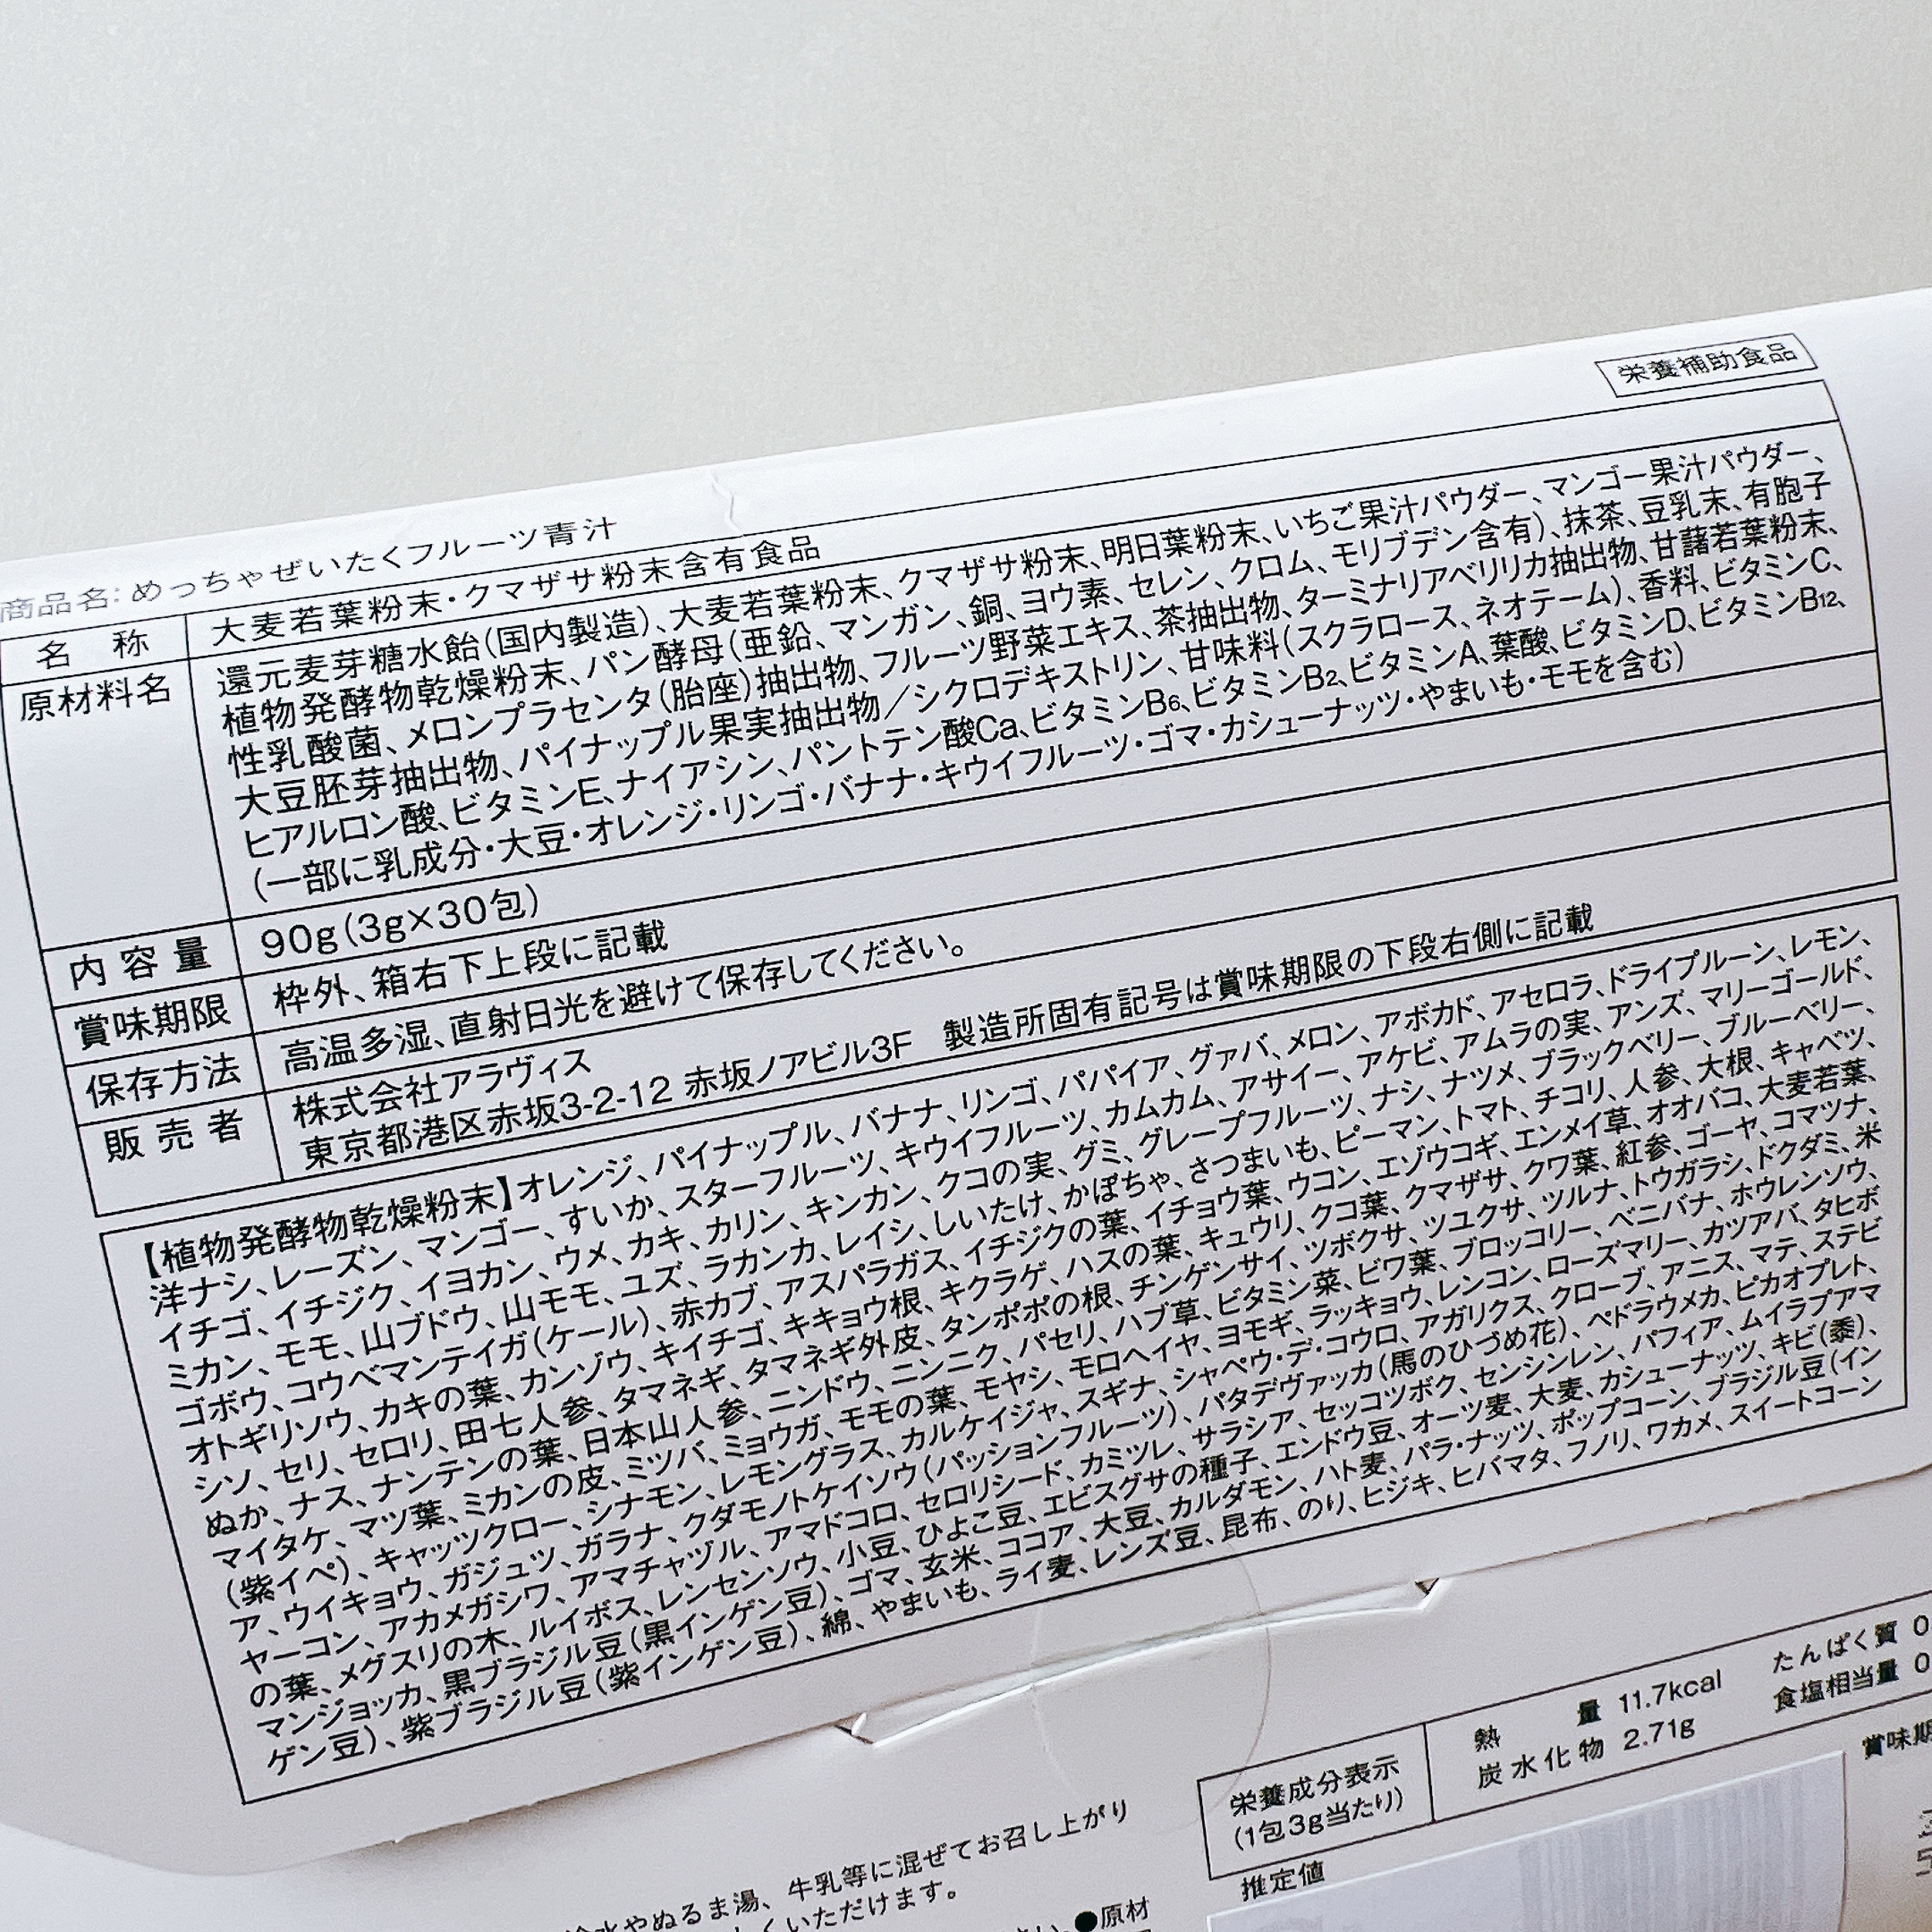 栄養補助食品
商品名:めっちゃぜいたくフルーツ青汁
名 称 大麦若葉粉末・クマザサ粉末含有食品
原材料名 還元麦芽糖水飴(国内製造)、大麦若葉粉末、クマザサ粉末、明日葉粉末、いちご果汁パウダー、マンゴー果汁パウダー、
植物発酵物乾燥粉末、パン酵母(亜鉛、マンガン、銅、ヨウ素、セレン、クロム、モリブデン含有)、抹茶、豆乳末、有胞子
性乳酸菌、メロンプラセンタ(胎座)抽出物、フルーツ野菜エキス、茶抽出物、ターミナリアベリリカ抽出物、甘藷若葉粉末、
大豆胚芽抽出物、パイナップル果実抽出物/シクロデキストリン、甘味料(スクラロース、ネオテーム)、香料、ビタミンC、
ヒアルロン酸、ビタミンE、ナイアシン、パントテン酸Ca、ビタミンB6、ビタミンB2、ビタミンA、葉酸、ビタミンD、ビタミンB12、
(一部に乳成分・大豆・オレンジ・リンゴ・バナナ・キウイフルーツ・ゴマ・カシューナッツ・やまいも・モモを含む)
内容量 90g(3g×30包)
賞味期限 枠外、箱右下上段に記載
保存方法 高温多湿、直射日光を避けて保存してください。
販売者 株式会社アラヴィス
東京都港区赤坂3-2-12 赤坂ノアビル3F 製造所固有記号は賞味期限の下段右側に記載
【植物発酵物乾燥粉末】オレンジ、パイナップル、バナナ、リンゴ、パパイア、グァバ、メロン、アボカド、アセロラ、ドライプルーン、レモン、
洋ナシ、レーズン、マンゴー、すいか、スターフルーツ、キウイフルーツ、カムカム、アサイー、アケビ、アムラの実、アンズ、マリーゴールド、
イチゴ、イチジク、イヨカン、ウメ、カキ、カリン、キンカン、クコの実、グミ、グレープフルーツ、ナシ、ナツメ、ブラックベリー、ブルーベリー、
ミカン、モモ、山ブドウ、山モモ、ユズ、ラカンカ、レイシ、しいたけ、かぼちゃ、さつまいも、ピーマン、トマト、チコリ、人参、大根、キャベツ、
ゴボウ、コウベマンテイガ(ケール)、赤カブ、アスパラガス、イチジクの葉、イチョウ葉、ウコン、エゾウコギ、エンメイ草、オオバコ、大麦若葉、
オトギリソウ、カキの葉、カンゾウ、キイチゴ、キキョウ根、キクラゲ、ハスの葉、キュウリ、クコ葉、クマザサ、クワ葉、紅参、ゴーヤ、コマツナ、
シソ、セリ、セロリ、田七人参、タマネギ、タマネギ外皮、タンポポの根、チンゲンサイ、ツボクサ、ツユクサ、ツルナ、トウガラシ、ドクダミ、米
ぬか、ナス、ナンテンの葉、日本山人参、ニンドウ、ニンニク、パセリ、ハブ草、ビタミン菜、ビワ葉、ブロッコリー、ベニバナ、ホウレンソウ、
マイタケ、マツ葉、ミカンの皮、ミツバ、ミョウガ、モモの葉、モヤシ、モロヘイヤ、ヨモギ、ラッキョウ、レンコン、ローズマリー、カツアバ、タヒボ
(紫イペ)、キャッツクロー、シナモン、レモングラス、カルケイジャ、スギナ、シャペウ・デ・コウロ、アガリクス、クローブ、アニス、マテ、ステビ
ア、ウイキョウ、ガジュツ、ガラナ、クダモノトケイソウ(パッションフルーツ)、パタデヴァッカ(馬のひづめ花)、ペドラウメカ、ピカオプレト、
ヤーコン、アカメガシワ、アマチャヅル、アマドコロ、セロリシード、カミツレ、サラシア、セッコツボク、センシンレン、パフィア、ムイラプアマ
の葉、メグスリの木、ルイボス、レンセンソウ、小豆、ひよこ豆、エビスグサの種子、エンドウ豆、オーツ麦、大麦、カシューナッツ、キビ(黍)、
マンジョッカ、黒ブラジル豆(黒インゲン豆)、ゴマ、玄米、ココア、大豆、カルダモン、ハト麦、パラ・ナッツ、ポップコーン、ブラジル豆(イン
ゲン豆)、紫ブラジル豆(紫インゲン豆)、綿、やまいも、ライ麦、レンズ豆、昆布、のり、ヒジキ、ヒバマタ、フノリ、ワカメ、スイートコーン
栄養成分表示
(1包3g当たり)
熱 量 11.7kcal たんぱく質 0
炭水化物 2.71g 食塩相当量 0
推定値
賞味期
やぬるま湯、牛乳等に混ぜてお召し上がり
いただけます。
さい。●原材